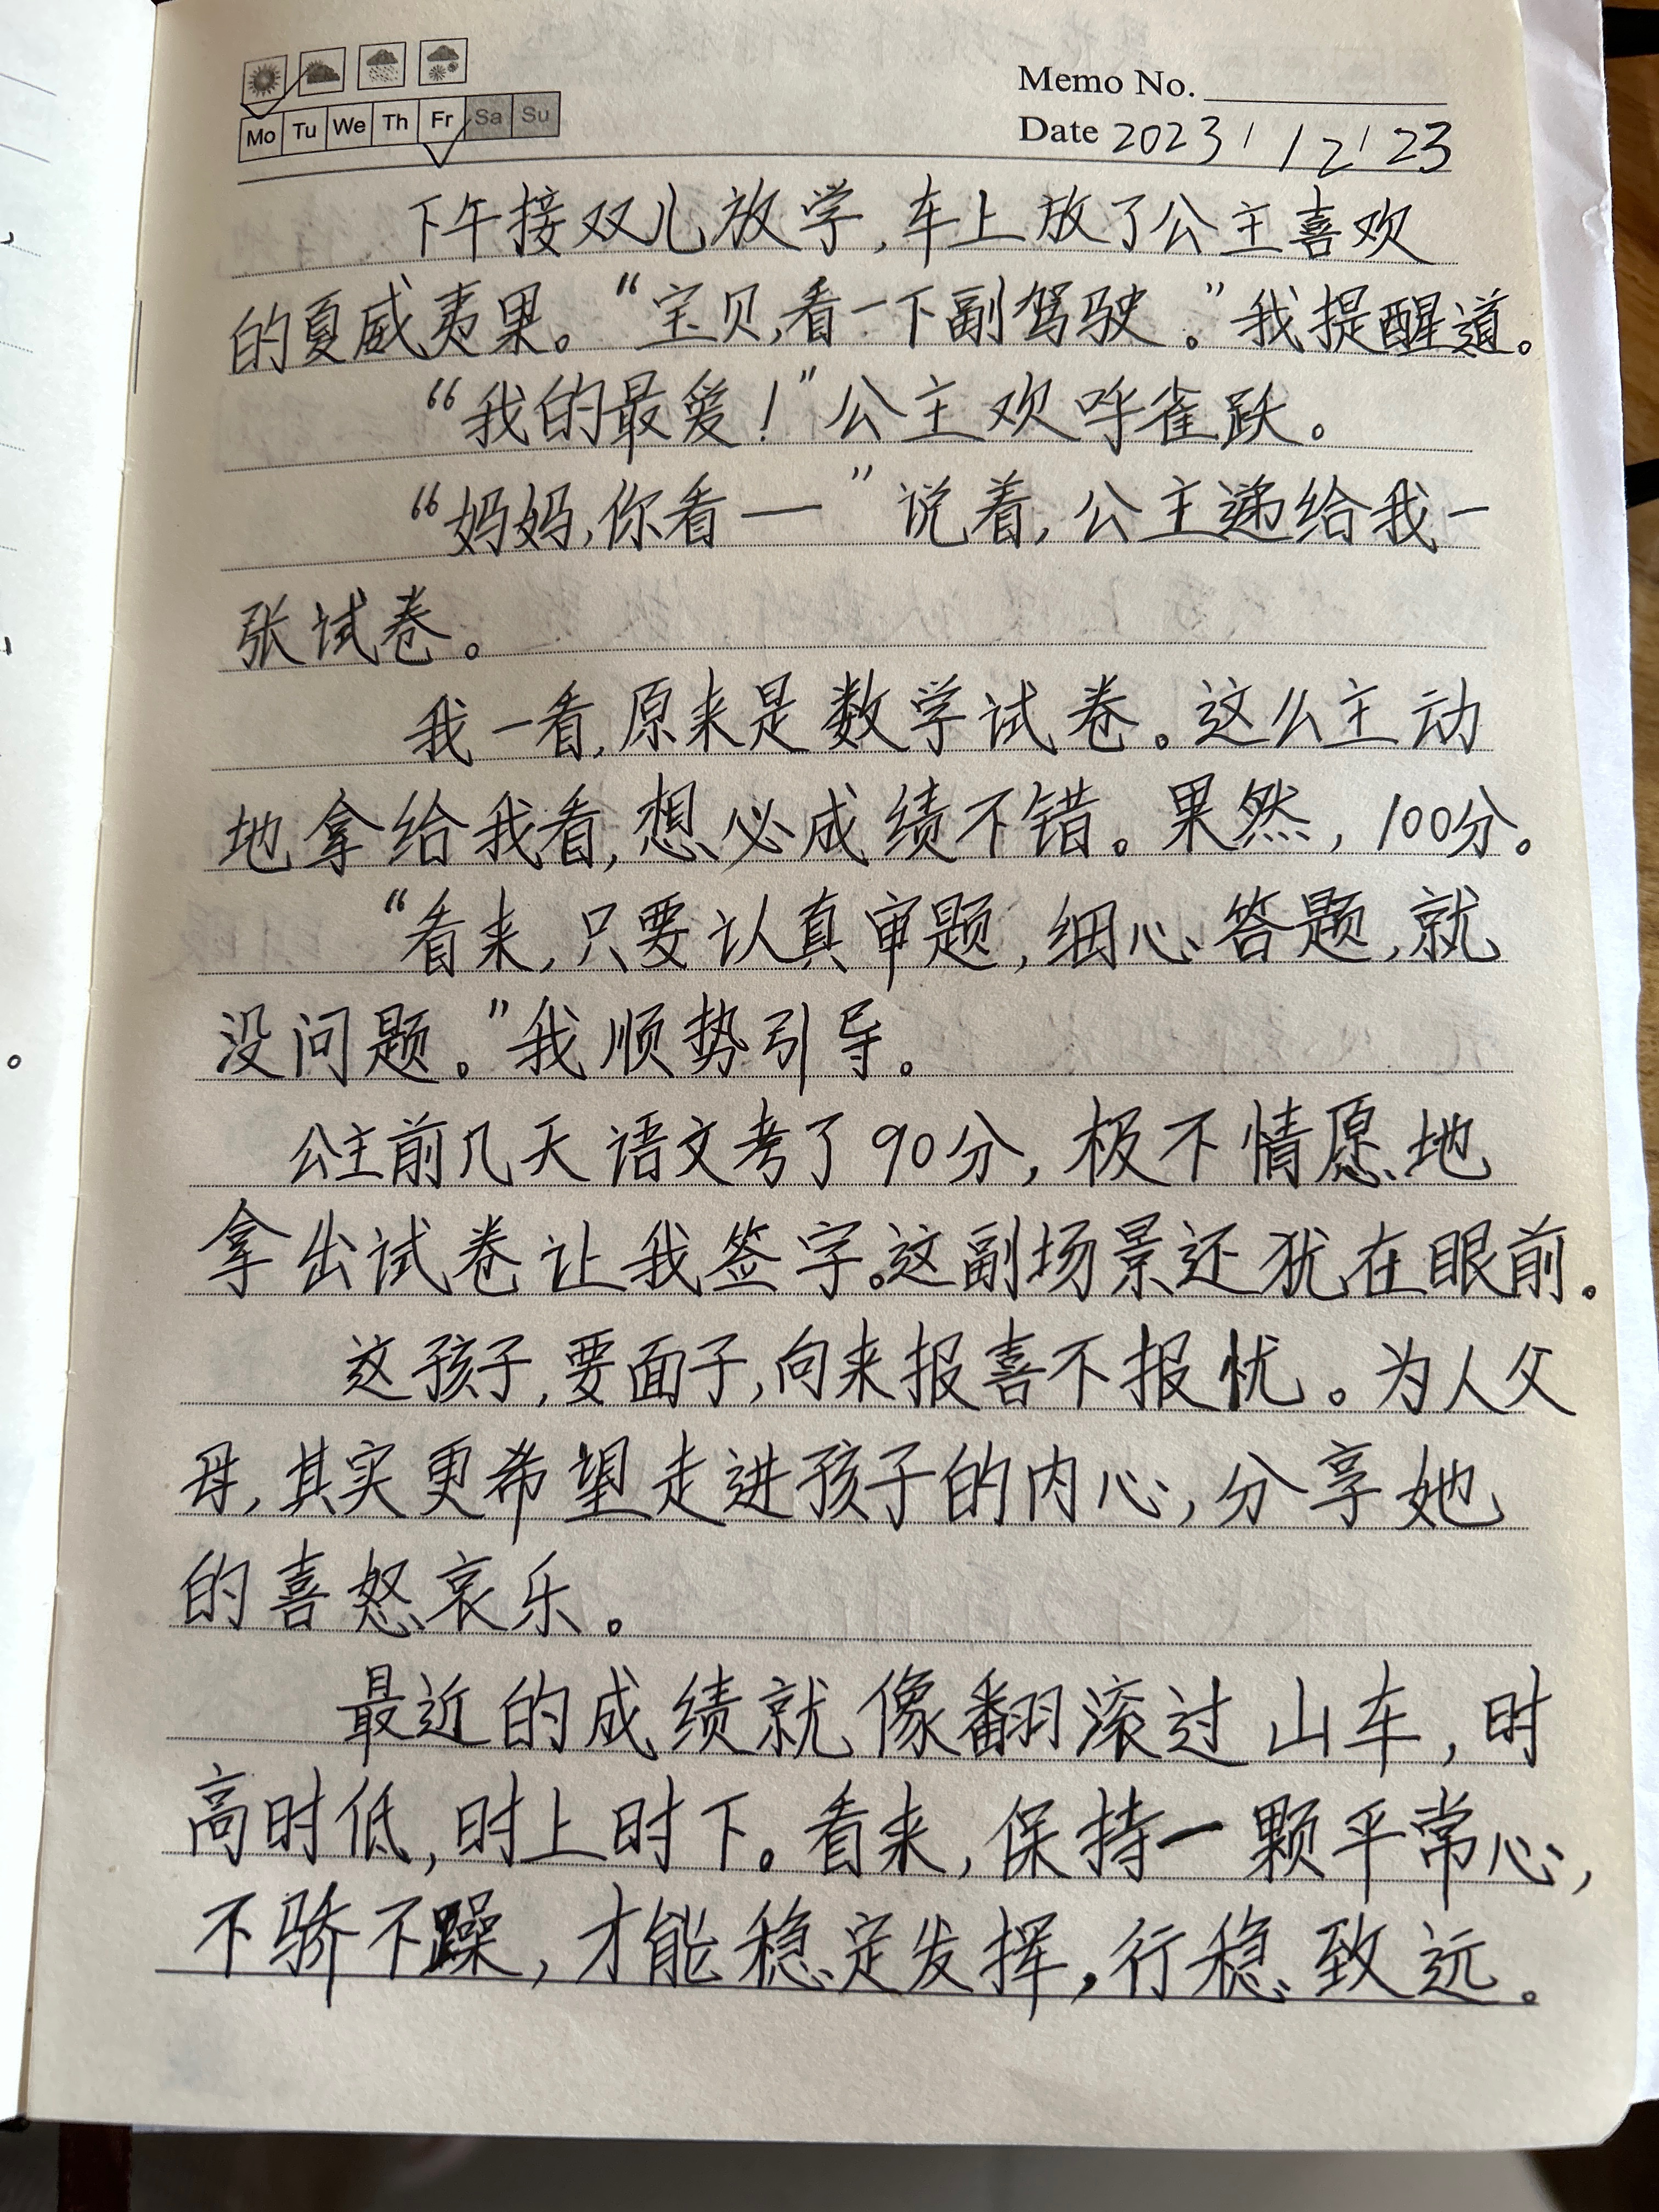 Memo No.
Mo Tu We Th Fr Sa Su
Date 2023'12'23
下午接双儿放学,车上放了公主喜欢
的夏威夷果。“宝贝,看一下副驾驶。”我提醒道。
“我的最爱!”公主欢呼雀跃。
“妈妈,你看一”说着,公主递给我一
张试卷。
我一看,原来是数学试卷。这么主动
地拿给我看,想必成绩不错。果然,100分。
“看来,只要认真审题,细心答题,就
没问题。”我顺势引导。
公主前几天语文考了90分,极不情愿地
拿出试卷让我签字。这副场景还犹在眼前。
这孩子,要面子,向来报喜不报忧。为人父
母,其实更希望走进孩子的内心,分享她
的喜怒哀乐。
最近的成绩就像翻滚过山车,时
高时低,时上时下。看来,保持一颗平常心,
不骄不躁,才能稳定发挥,行稳致远。